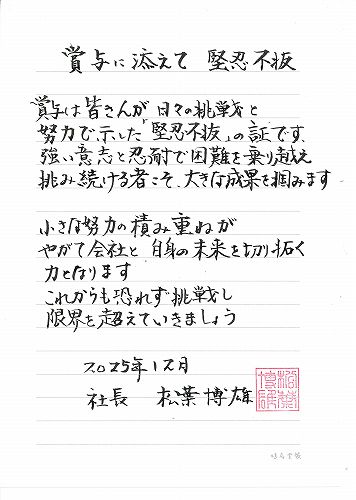 賞与に添えて 堅忍不抜
賞与は皆さんが日々の挑戦と
努力で示した「堅忍不抜」の証です、
強い意志と忍耐で困難を乗り越え
挑み続ける者こそ、大きな成果を掴みます
小さな努力の積み重ねが
やがて会社と自身の未来を切り拓く
力となります
これからも恐れず挑戦し
限界を超えていきましょう
2025年12月
社長 松葉博雄